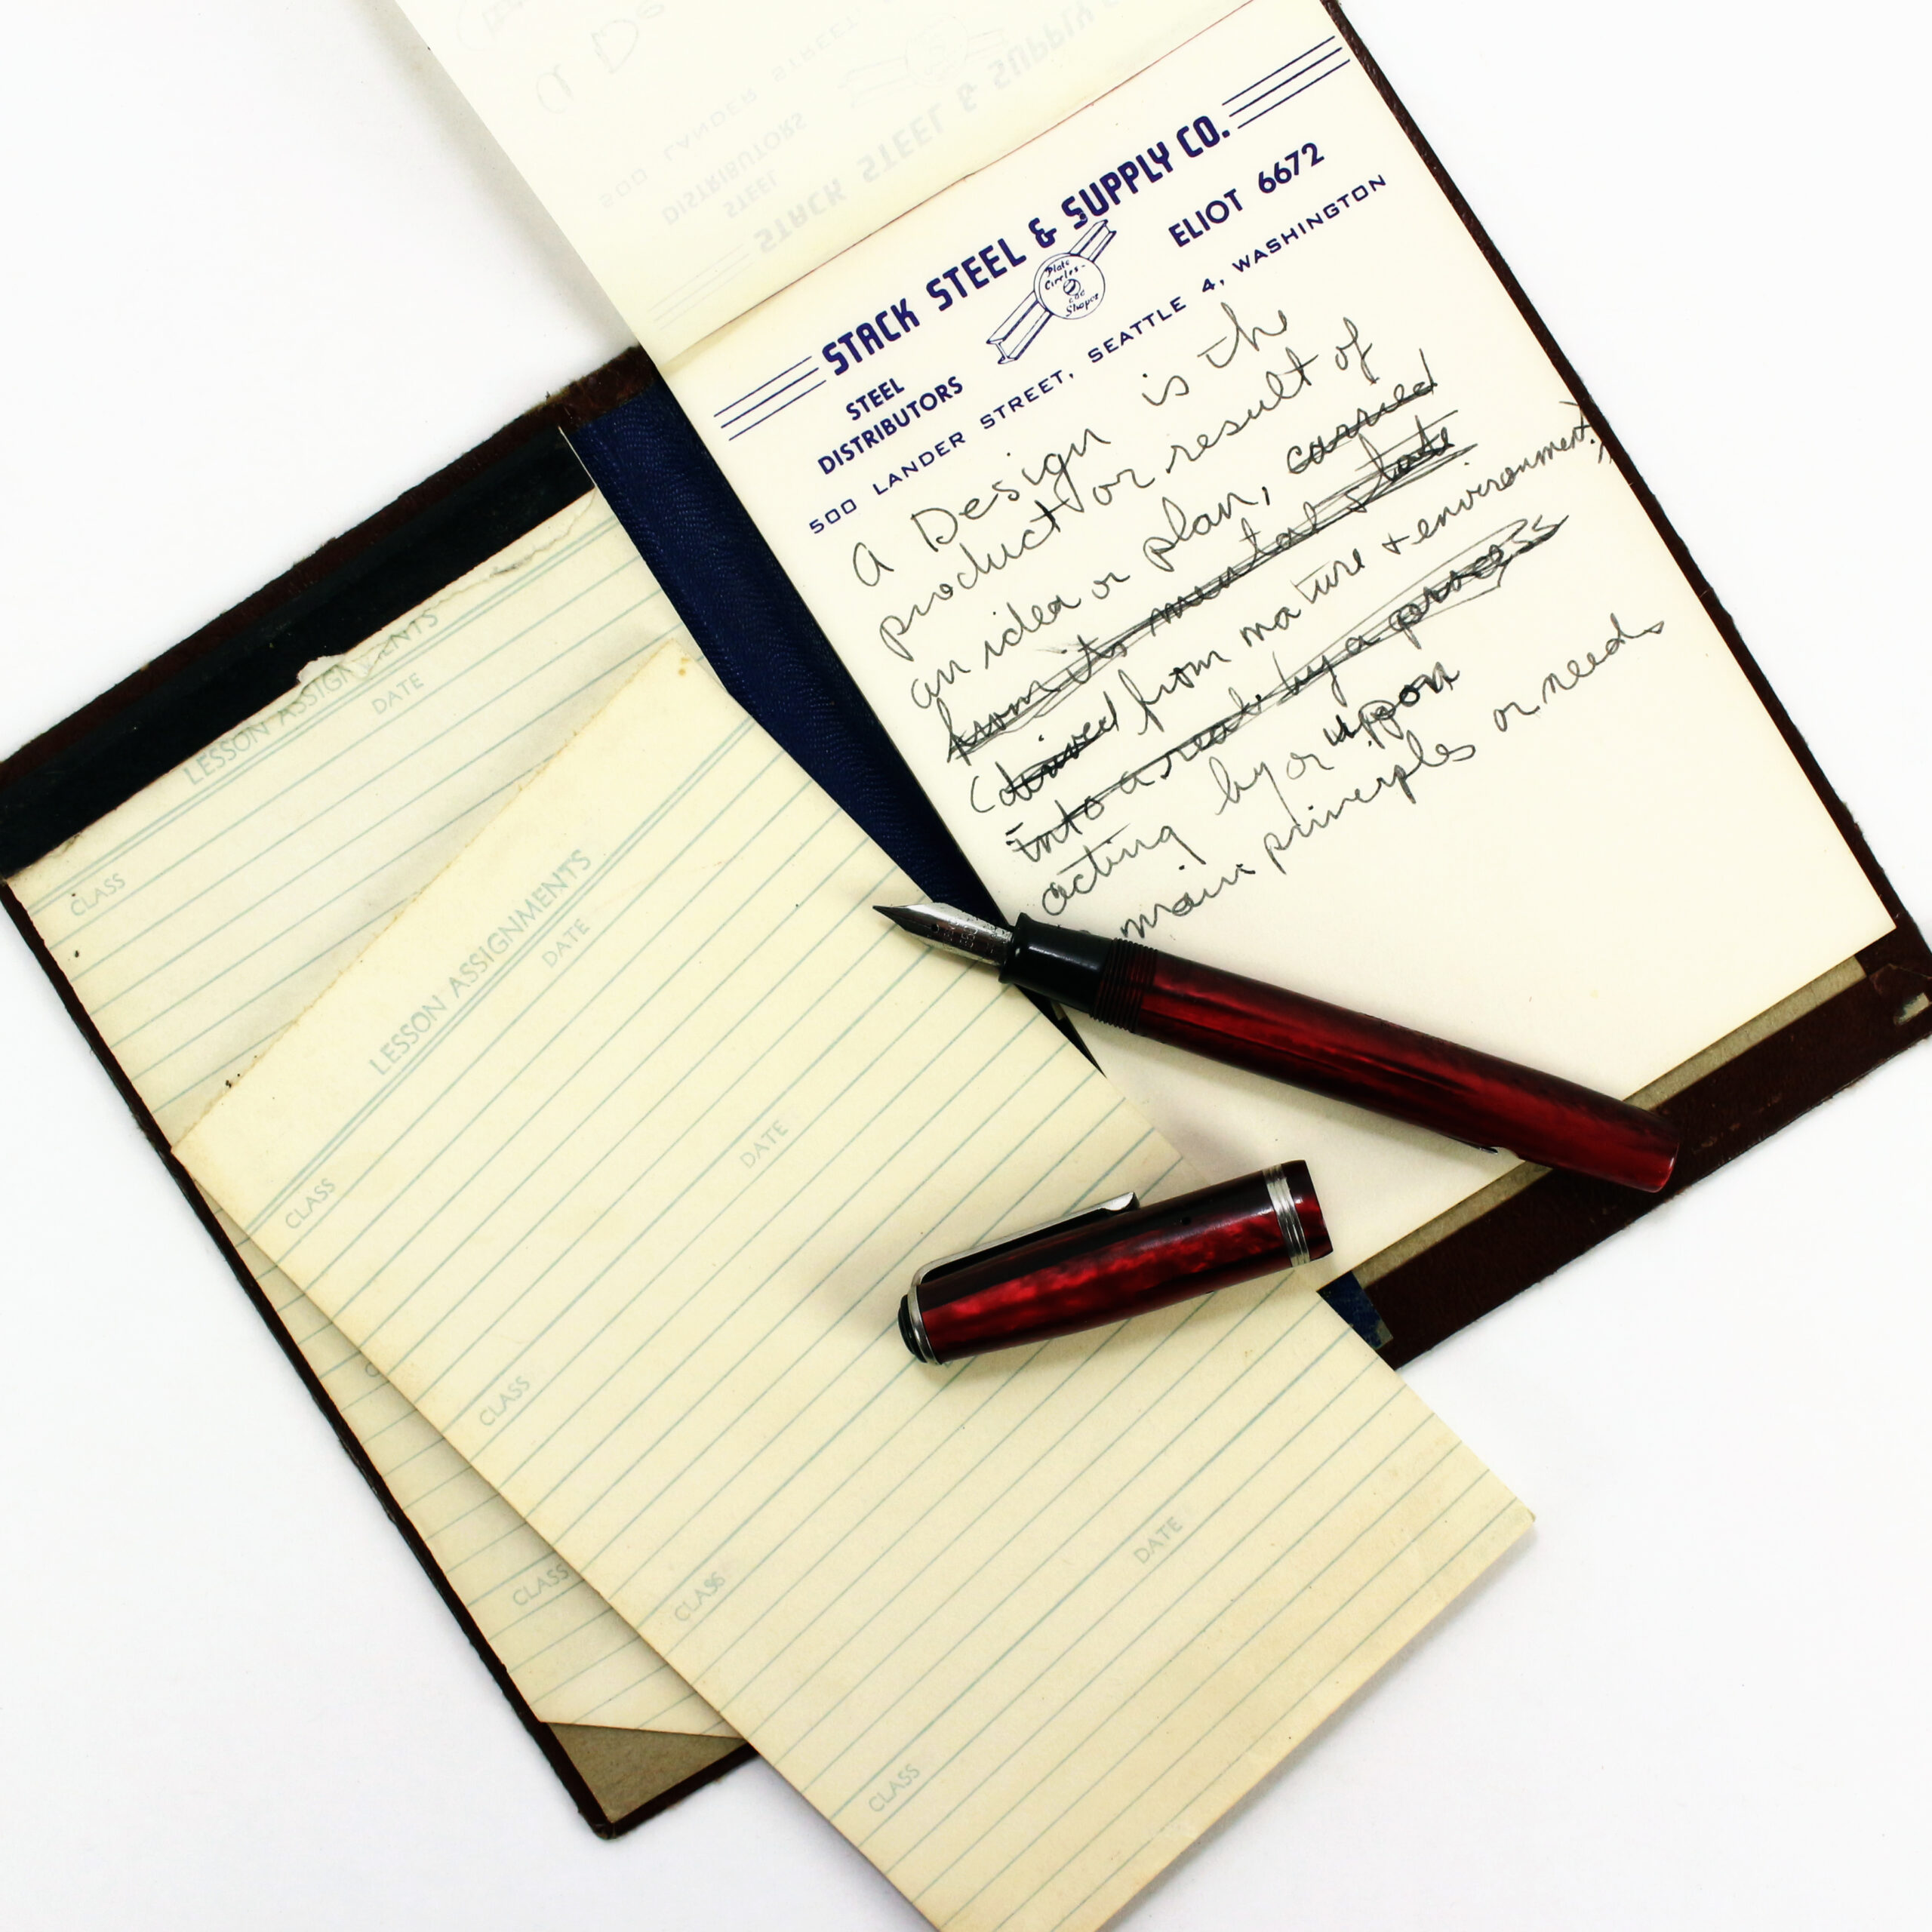 STACK STEEL & SUPPLY CO.
STEEL
DISTRIBUTORS
ELIOT 6672
Plate
Circles-
and
Shapes
500 LANDER STREET, SEATTLE 4, WASHINGTON
A Design is the
product or result of
an idea or plan, carried
from its mental state
(derived from nature + environment)
into a reality by a process
acting by or upon
main principles or needs
LESSON ASSIGNMENTS
DATE
CLASS
CLASS
LESSON ASSIGNMENTS
DATE
CLASS
DATE
CLASS
CLASS
DATE
CLASS
STACK STEEL & SUPPLY CO.
STEEL
DISTRIBUTORS
500 LANDER STREET